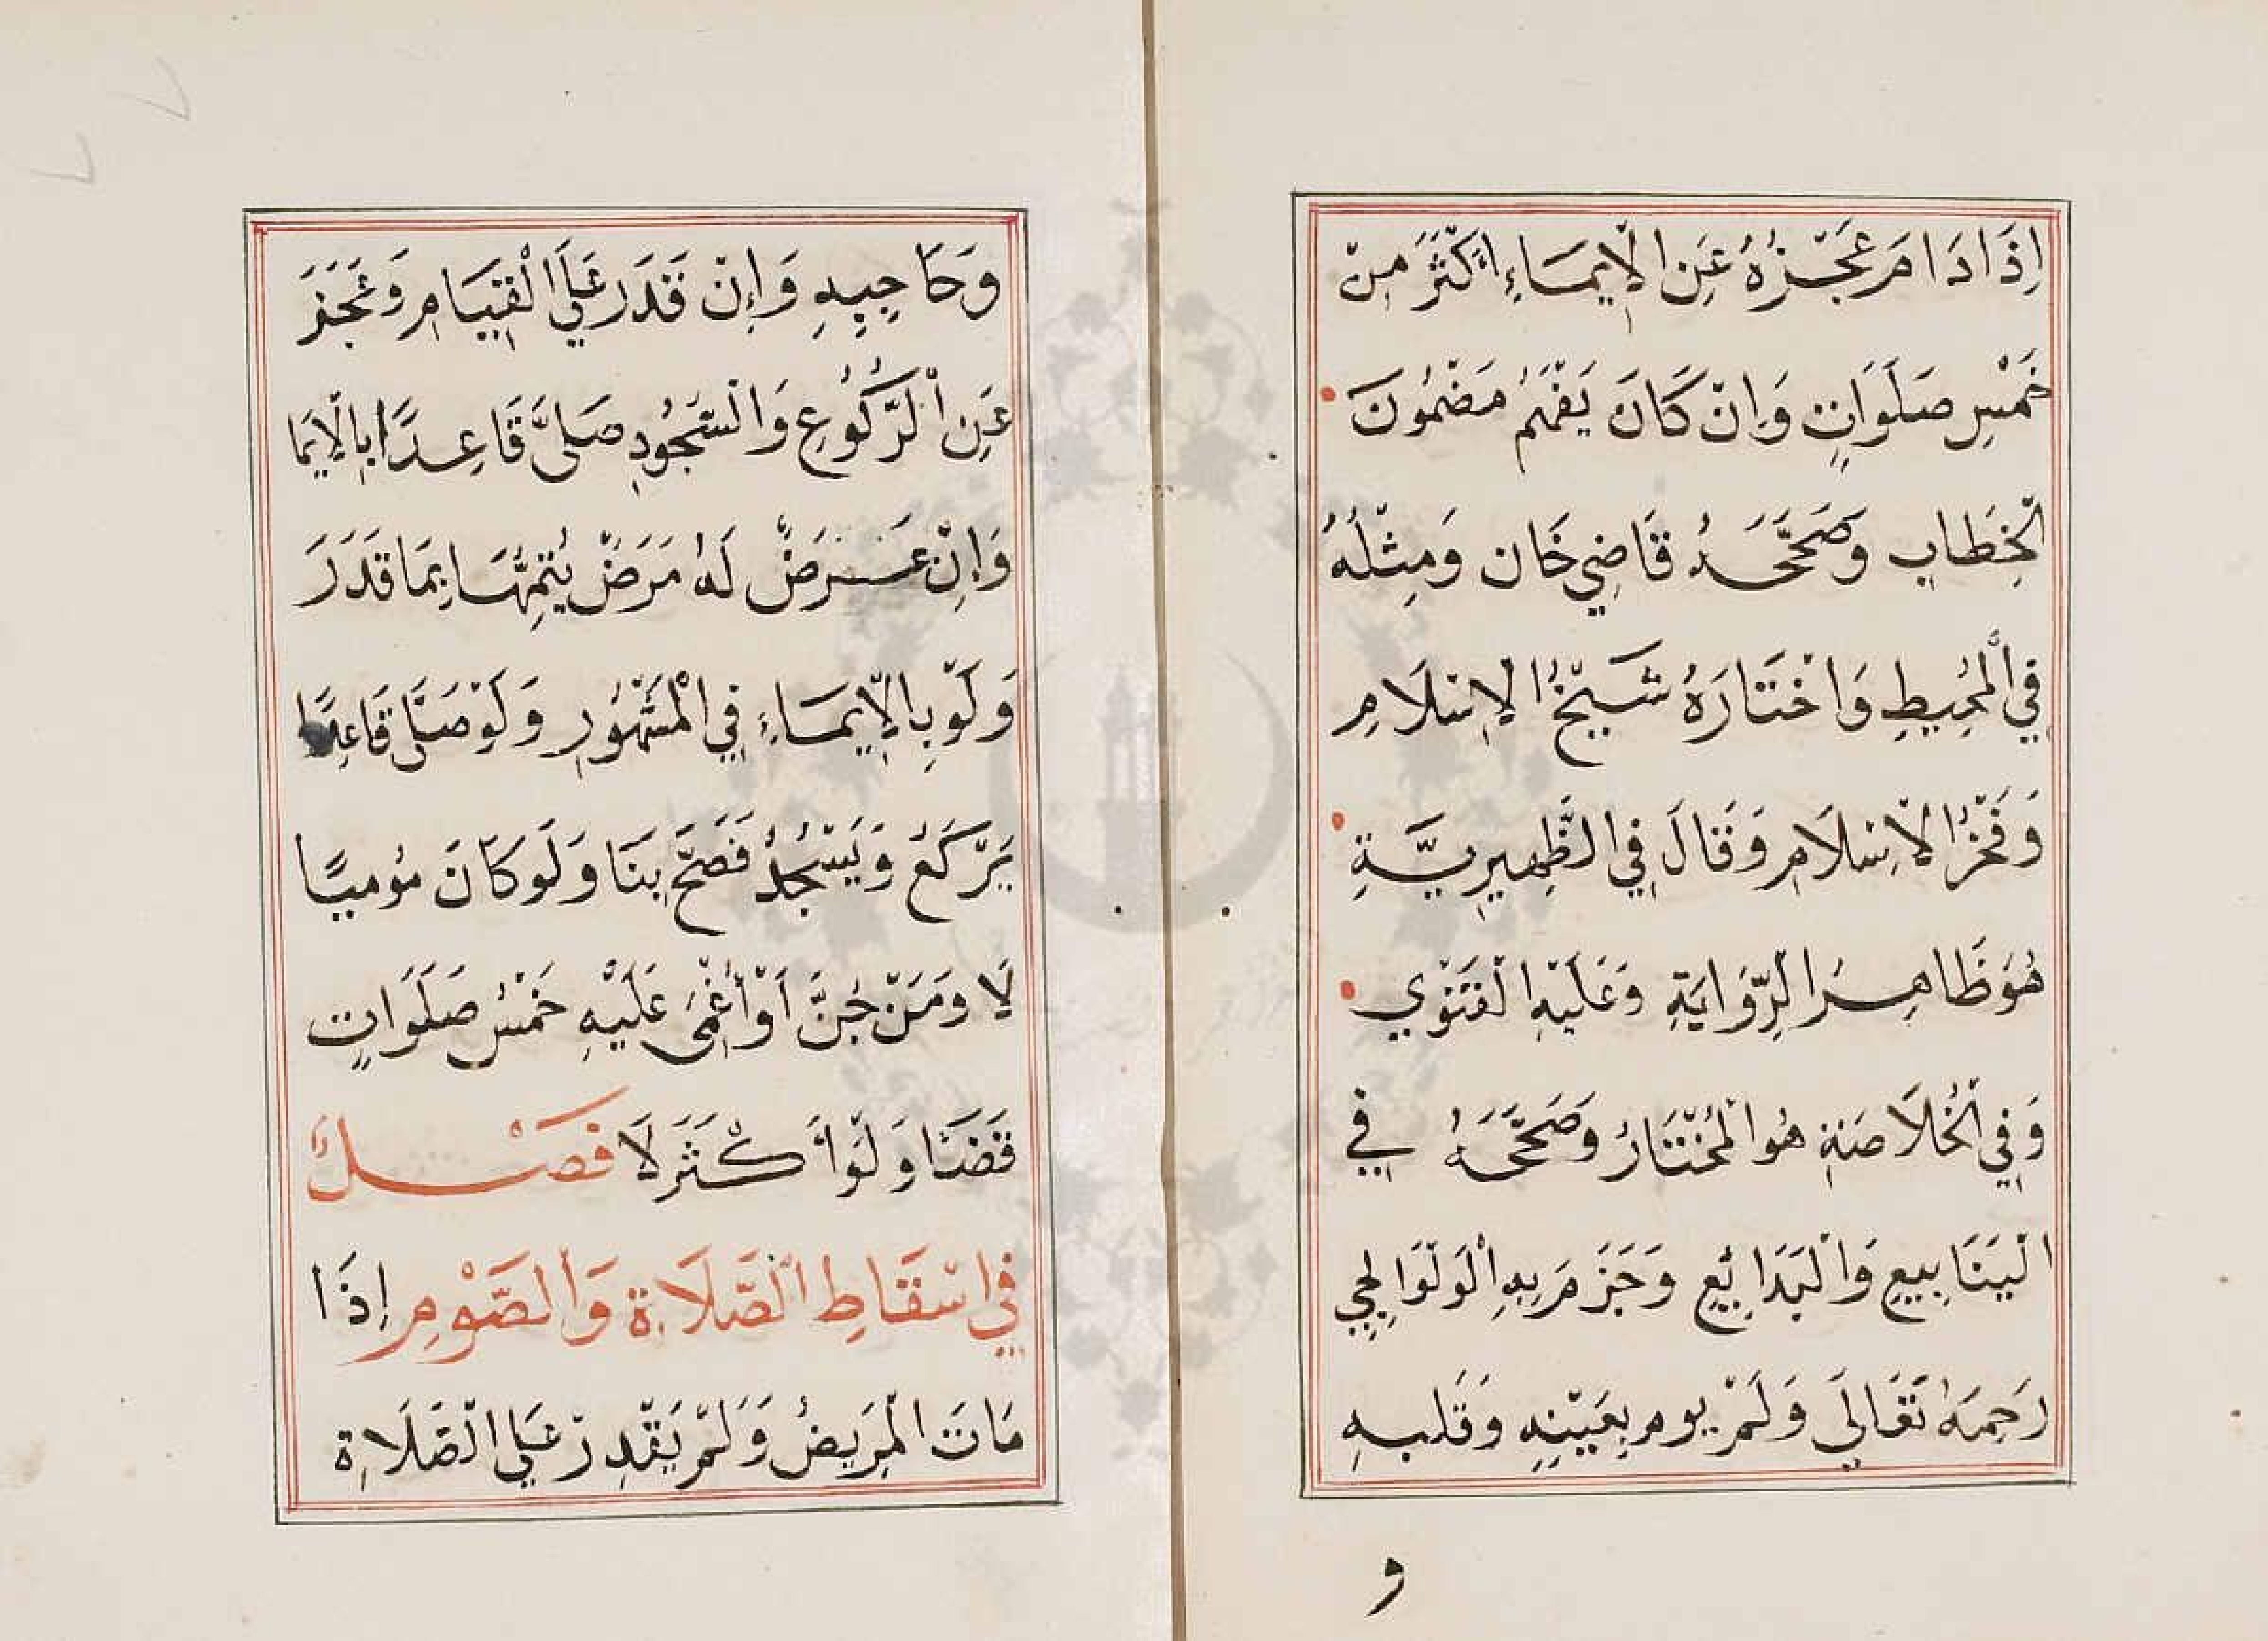 اِذَا دَامَ عَجْزُهُ عَنِ الْاِيمَاءِ اَكْثَرَ مِنْ
خَمْسِ صَلَوَاتٍ وَاِنْ كَانَ يَفْهَمُ مَضْمُونَ
الْخِطَابِ وَصَحَّحَهُ قَاضِي خَان وَمِثْلُهُ
فِي الْمُحِيطِ وَاخْتَارَهُ شَيْخُ الْاِسْلَامِ
وَفَخْرُ الْاِسْلَامِ وَقَالَ فِي الظَّهِيرِيَّةِ
هُوَ ظَاهِرُ الرِّوَايَةِ وَعَلَيْهِ الْفَتْوَي
وَفِي الْخُلَاصَةِ هُوَ الْمُخْتَارُ وَصَحَّحَهُ فِي
الْيَنَابِيعِ وَالْبَدَائِعِ وَجَزَمَ بِهِ الْوَلْوَالِجِي
رَحِمَهُ تَعَالَي وَلَمْ يوم بِعَيْنِهِ وَقَلبهِ
و
وَحَاجِبِهِ وَاِنْ قَدَرَ عَلَي الْقِيَامِ وَعَجَزَ
عَنِ الرُّكُوعِ وَالسُّجُودِ صَلَّى قَاعِدًا بِالْاِيمَا
وَاِنْ عَرَضَ لَهُ مَرَضٌ يُتِمُّهَا بِمَا قَدَرَ
وَلَوْ بِالْاِيمَاءِ فِي الْمَشْهُورِ وَلَوْ صَلَّي قَاعِدًا
يَرْكَعُ وَيَسْجُدُ فَصَحَّ بَنَا وَلَوْ كَانَ مُومِيًا
لَا وَمَنْ جُنَّ اَوْ اُغْمِيَ عَلَيْهِ خَمْسُ صَلَوَاتٍ
قَضَا وَلَوْ اَكْثَرَ لَا فَصْلٌ
فِي اسْقَاطِ الصَّلَاةِ وَالصَّوْمِ اِذَا
مَاتَ الْمَرِيضُ وَلَمْ يَقْدِرْ عَلَي الصَّلَاةِ